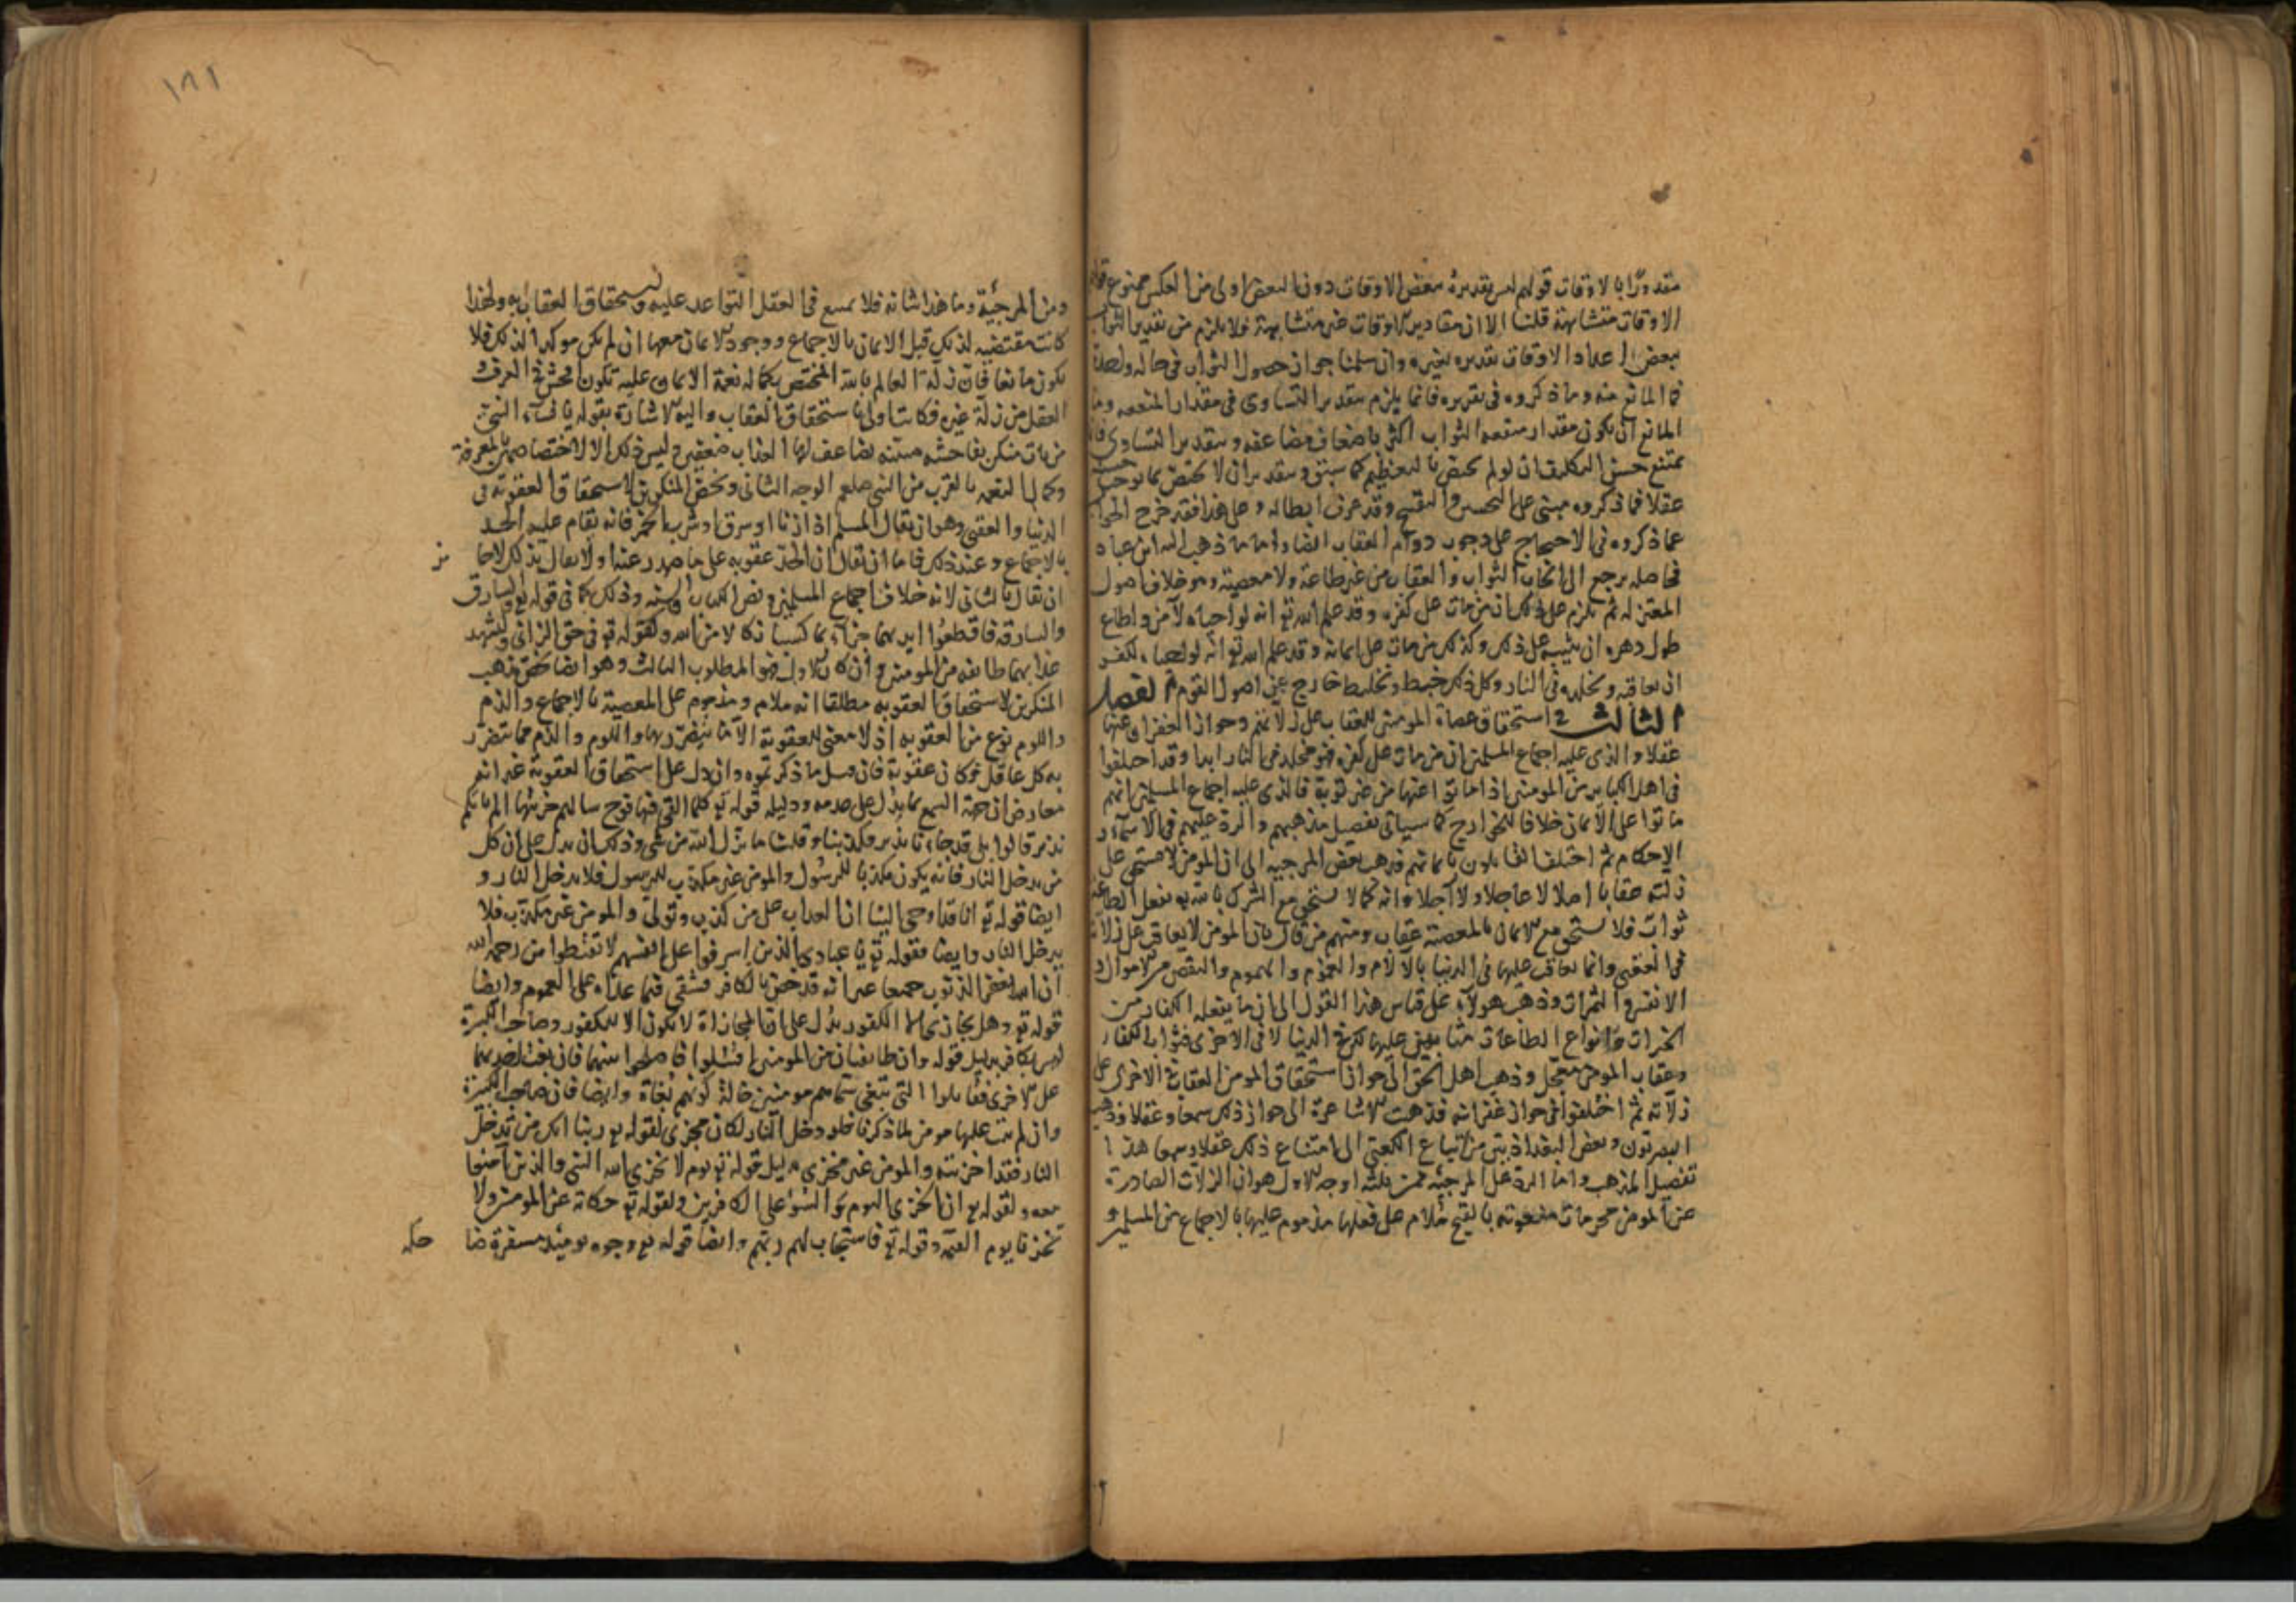 مقدورا بالاوقات قولهم ليس تقديره ببعض الاوقات دون البعض اولى من العكس ممنوع
الاوقات متشابهة قلنا الا ان مقادير الاوقات غير متشابهة فلا يلزم من تقدير الثواب
ببعض اعداد الاوقات تقديره بغيره وان سلمنا جواز حصول الثواب في حالة واحدة
فما المانع منه وما ذكروه في تقريره فانما يلزم بتقدير التساوي في مقدار المنعم وما
المانع ان يكون مقدار متعه الثواب اكثر باضعاف مضاعفه وبتقدير التساوي
يمتنع حسن التكليف ان لو لم يختص بالتعظيم كما سبق وبتقدير ان لا يختص بما يوجب حسنه
عقلا فما ذكروه مبني على التحسين والتقبيح وقد عرف ابطاله وعلى هذا فقد خرج الجواب
عما ذكروه في الاحتجاج على وجوب دوام العقاب ايضا واما ما ذهب اليه ابن عباد
فحاصله يرجع الى ايجاب الثواب والعقاب من غير طاعة ولا معصية وهو خلاف اصول
المعتزله ثم يلزم على ذلك ان من مات على كفره وقد علم الله تع انه لو احياه لآمن واطاع
طول دهره ان يثيبه على ذلك وكذلك من مات على ايمانه وقد علم الله تع انه لو احياه لكفر
ان يعاقبه ويخلده في النار وكل ذلك خبط وتخليط خارج عن اصول القوم الفصل
الثالث في استحقاق عصاة المومنين للعقاب على زلاتهم وجواز الغفران عنها
عقلا والذي عليه اجماع المسلمين ان من مات على كفره فهو مخلد في النار ابدا وقد اختلفوا
في اهل الكباير من المومنين اذا ماتوا عنها من غير توبة فالذي عليه اجماع المسلمين انهم
ماتوا على الايمان خلافا للخوارج كما سياتي تفصيل مذهبهم والرد عليهم في الاسماء و
الاحكام ثم اختلف القايلون بايمانهم فذهب بعض المرجيه الى ان المومن لا يستحق على
زلته عقابا اصلا لا عاجلا ولا آجلا وانه كما لا يستحق مع الشرك بالله بفعل الطاعة
ثوابا فلا يستحق مع الايمان بالمعصية عقاب ومنهم من قال بان المومن لا يعاقب على زلاته
في العقبى وانما يعاقب عليها في الدنيا بالآلام والغموم والهموم والنقص من الاموال و
الانفس والثمرات وذهب هولاء على قياس هذا القول الى ان ما يفعله الكفار من
الخيرات وانواع الطاعات مثابين عليها لكن في الدنيا لا في الاخرى فثواب الكفار
وعقاب المومن معجل وذهب اهل الحق الى جواز استحقاق المومن العقاب في الاخرى على
زلاته ثم اختلفوا في جواز غفرانه فذهبت الاشاعرة الى جواز ذلك سمعا وعقلا وذهب
البصريون وبعض البغداذيين من اتباع الكعبي الى امتناع ذلك عقلا وسمعا هذا
تفصيل المذهب واما الرد على المرجئه فمن ثلثه اوجه الاول هو ان الزلات الصادرة
عن المومن محرمات منعوته بالقبح ملام على فعلها مذموم عليها بالاجماع من المسلمين و
١٨١
ومن المرجية وما هذا شانه فلا يمتنع في العقل التواعد عليه واستحقاق العقاب به ولهذا
كانت مقتضيه لذلك قبل الايمان بالاجماع ووجود الايمان معها ان لم يكن موكدا لذلك فلا
يكون مانعا فان زلة العالم بالله المختص بكمال نعمة الايمان عليه تكون افحش في العرف و
العقل من زلة غيره فكانت اولى باستحقاق العقاب واليه الاشارة بقوله يا نساء النبي
من يات منكن بفاحشه مبينه يضاعف لها العذاب ضعفين وليس ذلك الا لاختصاصهن بالمعرفة
وكمال النعمه بالقرب من النبي صلعم الوجه الثاني ويخص المنكرين لاستحقاق العقوبة في
الدنيا والعقبى وهو ان يقال المسلم اذا زنا او سرق او شرب الخمر فانه يقام عليه الحد
بالاجماع وعند ذلك فاما ان يقال ان الحد عقوبه على ما صدر عنه او لا يقال بذلك لا جايز
ان يقال بالثاني لانه خلاف اجماع المسلمين ونص الكتاب والسنه وذلك كما في قوله تع والسارق
والسارقة فاقطعوا ايديهما جزاء بما كسبا نكالا من الله ولقوله تع في حق الزاني وليشهد
عذابهما طايفه من المومنين وان كان الاول فهو المطلوب الثالث وهو ايضا يخص مذهب
المنكرين لاستحقاق العقوبه مطلقا انه ملام ومذموم على المعصية بالاجماع والذم
واللوم نوع من العقوبه اذ لا معنى للعقوبة الا ما يتضرر بها واللوم والذم مما يتضرر
به كل عاقل فكان عقوبة فان قيل ما ذكرتموه وان دل على استحقاق العقوبة غير انه
معارض ان جهة السمع بما يدل على عدمه ودليله قوله تع كلما القي فيها فوج سالهم خزنتها الم ياتكم
نذير قالوا بلى قد جاءنا نذير فكذبنا وقلنا ما نزل الله من شي وذلك ان يدل على ان كل
من يدخل النار فانه يكون مكذبا للرسول والمومن غير مكذب للرسول فلا يدخل النار و
ايضا قوله تع انا قد اوحي الينا ان العذاب على من كذب وتولى والمومن غير مكذب فلا
يدخل النار وايضا فقوله تع يا عبادي الذين اسرفوا على انفسهم لا تقنطوا من رحمة الله
ان الله يغفر الذنوب جميعا غير انه قد خص بالكافر فبقي فيما عداه على العموم وايضا
قوله تع وهل يجازى الا الكفور يدل على ان المجازاة لا تكون الا للكفور وصاحب الكبيرة
ليس بكافر بدليل قوله وان طايفتان من المومنين اقتتلوا فاصلحوا بينهما فان بغت احديهما
على الاخرى فقاتلوا التي تبغي سماهم مومنين حالة كونهم بغاة وايضا فان صاحب الكبيرة
وان لم يتب عليها مومن لما ذكرنا فلو دخل النار لكان مخزى لقوله تع ربنا انك من تدخل
النار فقد اخزيته والمومن غير مخزى بدليل قوله تع يوم لا يخزي الله النبي والذين آمنوا
معه ولقوله تع ان الخزي اليوم والسوء على الكافرين ولقوله تع حكاية عن المومنين ولا
تخزنا يوم القيمه وقوله تع فاستجاب لهم ربهم وايضا قوله تع وجوه يومئذ مسفرة ضا
حكه